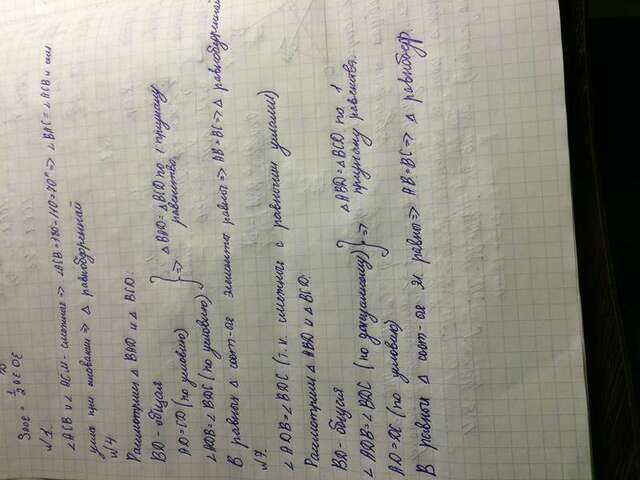 S AOE = 1/2 OE
№1.
∠ACB и ∠BCM - смежные => ∠ACB = 180 - 110 = 70° => ∠BAC = ∠ACB и они
углы при основании => Δ равнобедренный
№4
Рассмотрим Δ BAD и Δ BCD:
BD - общая
AD = CD (по условию)
∠ADB = ∠BDC (по условию) } => Δ BAD = Δ BCD по 1 признаку равенства
В равных Δ соот-ые элементы равны => AB = BC => Δ равнобедренный
№7.
∠ADB = ∠BDC (т.к. смежные с равными углами)
Рассмотрим Δ ABD и Δ BCD:
BD - общая
∠ADB = ∠BDC (по доказанному) } => Δ ABD = Δ BCD по 1 признаку равенства.
AD = DC (по условию)
В равных Δ соот-ые эл. равны => AB = BC => Δ равнобедр.